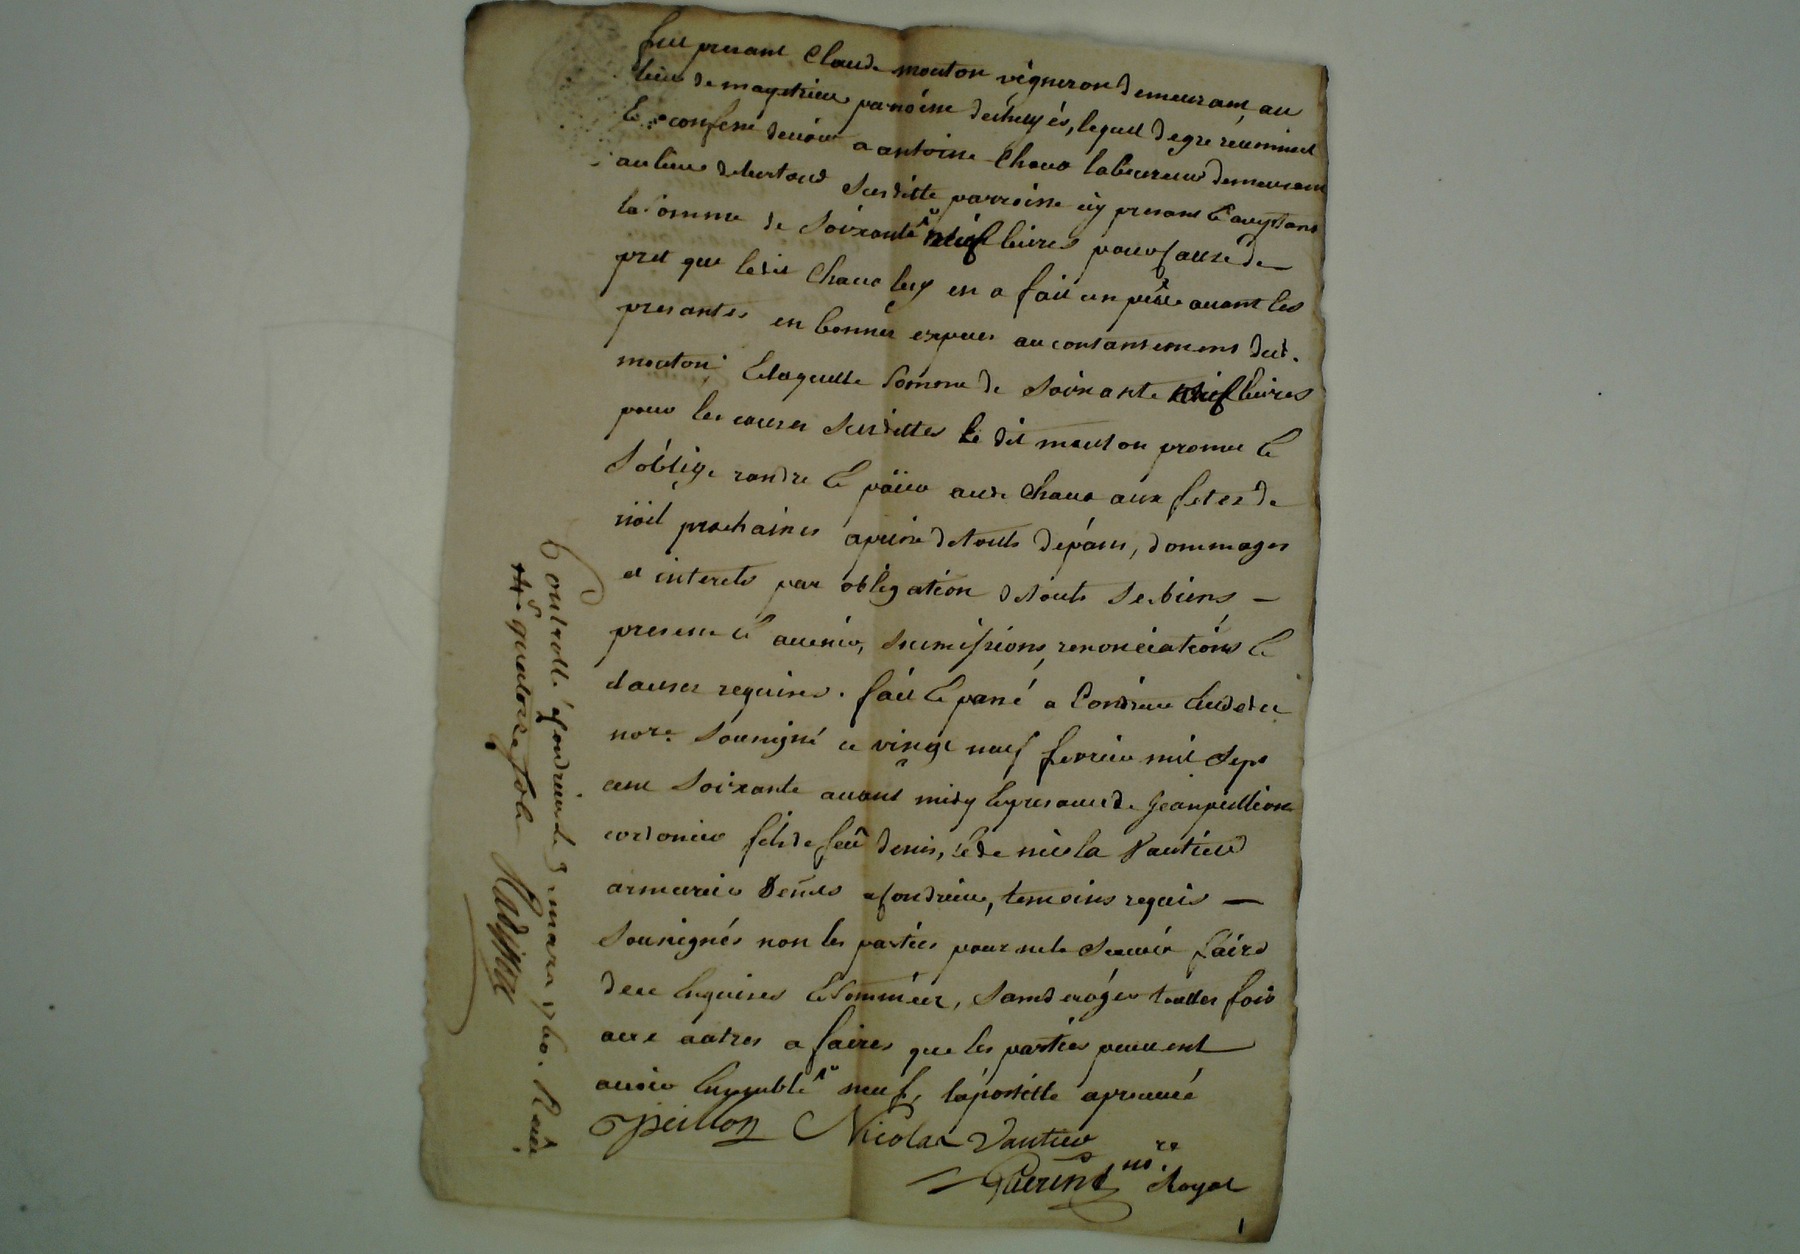 fut presant Claude mouton vigneron demeurant au
lieu de parroisse lequel de gré reconnait
Et confesse devoir a antoine Chava laboureur demeurant
au lieu susditte parroisse icy presant Et acceptant
la somme de soixante neuf livres pour cause de
pret que ledit Chava luy en a fait un peu avant les
presantes en bonnes especes au contantement dud.
mouton Et laquelle somme de soixante neuf livres
pour les causes susdittes le dit mouton promet Et
s'oblige randre Et païer aud. Chava aux fetes de
nöel prochaines a peine de touts depans, dommages
et interets par obligation de touts ses biens —
presens Et avenir, sumissions, renonciations Et
clauses requises. fait Et passé a Condrieu Etude du
nore. soussigné ce vingt neuf fevrier mil sept
cent soixante avant midy En presance de Jean peillion
cordonier fils de feu denis, et de nicola Vautier
armurier a Condrieu, temoins requis —
soussignés non les parties pour ne le scavoir faire
de ce Enquises Et sommées, sans deroger touttes fois
aux autres afaires que les parties peuvent
avoir Ensemble neuf, l'apostille aprouvé
Jpeillon Nicolas Vautier
Guerin nre. Royal
Controllé a Condrieu le 3 mars 1760. Recu
quatorze sols